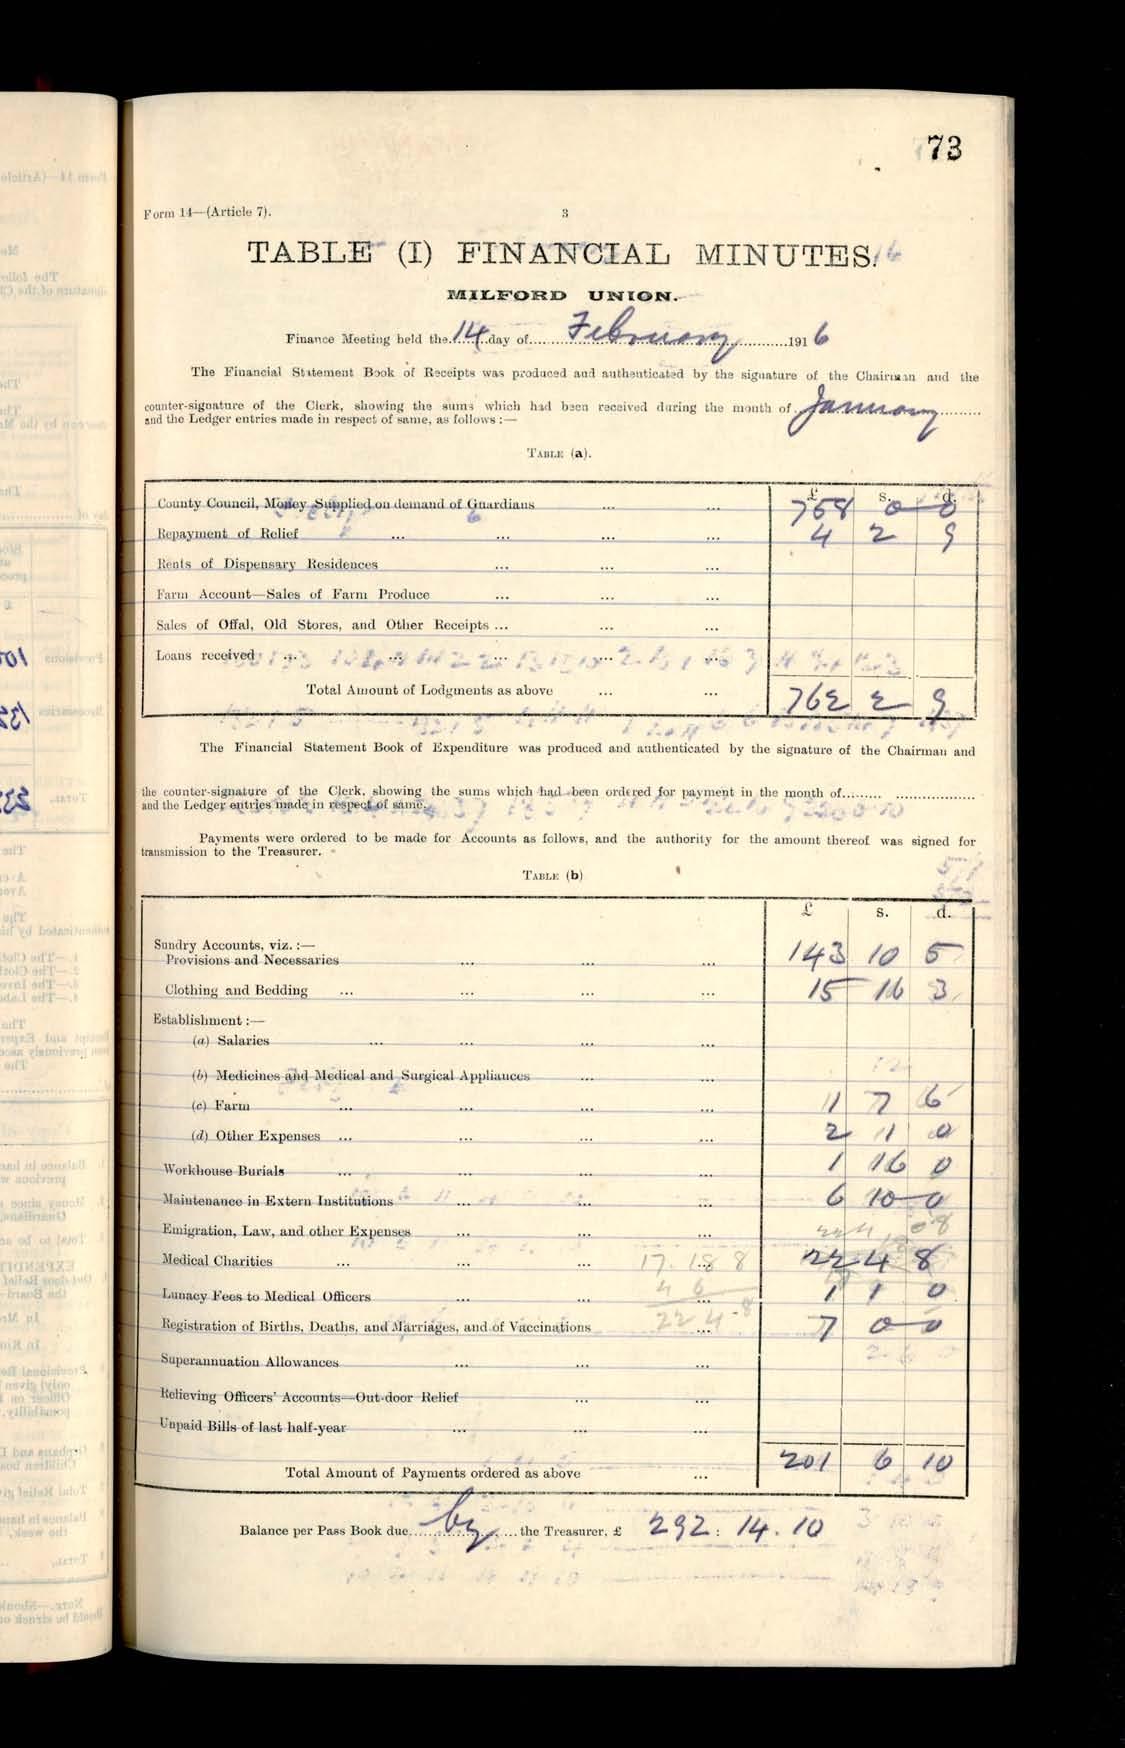 73
Form 14—(Article 7).
3
TABLE (I) FINANCIAL MINUTES.
MILFORD UNION.
Finance Meeting held the 14 day of February 1916
The Financial Statement Book of Receipts was produced and authenticated by the signature of the Chairman and the
counter-signature of the Clerk, showing the sums which had been received during the month of January
and the Ledger entries made in respect of same, as follows :—
TABLE (a).
£ s. d.
County Council, Money Supplied on demand of Guardians ... ... 758 0 0
Repayment of Relief ... ... ... ... 4 2 9
Rents of Dispensary Residences ... ... ...
Farm Account—Sales of Farm Produce ... ... ...
Sales of Offal, Old Stores, and Other Receipts ... ... ...
Loans received ... ... ... ... ...
Total Amount of Lodgments as above ... ... 762 2 9
The Financial Statement Book of Expenditure was produced and authenticated by the signature of the Chairman and
the counter-signature of the Clerk, showing the sums which had been ordered for payment in the month of......... ...................
and the Ledger entries made in respect of same.
Payments were ordered to be made for Accounts as follows, and the authority for the amount thereof was signed for
transmission to the Treasurer.
TABLE (b)
£ s. d.
Sundry Accounts, viz. :—
Provisions and Necessaries ... ... ... 143 10 5
Clothing and Bedding ... ... ... ... 15 16 3
Establishment :—
(a) Salaries ... ... ... ...
(b) Medicines and Medical and Surgical Appliances ... ...
(c) Farm ... ... ... ... 1 7 6
(d) Other Expenses ... ... ... ... 2 11 0
Workhouse Burials ... ... ... ... 1 16 0
Maintenance in Extern Institutions ... ... ... 6 10 0
Emigration, Law, and other Expenses ... ... ...
Medical Charities ... ... ... 17. 18 8 22 4 8
Lunacy Fees to Medical Officers ... ... 4 6 ... 1 1 0
22 4 - 8
Registration of Births, Deaths, and Marriages, and of Vaccinations ... 7 0 0
Superannuation Allowances ... ... ...
Relieving Officers' Accounts—Out-door Relief ... ...
Unpaid Bills of last half-year ... ... ...
Total Amount of Payments ordered as above ... 201 6 10
Balance per Pass Book due by the Treasurer, £ 292 : 14 . 10